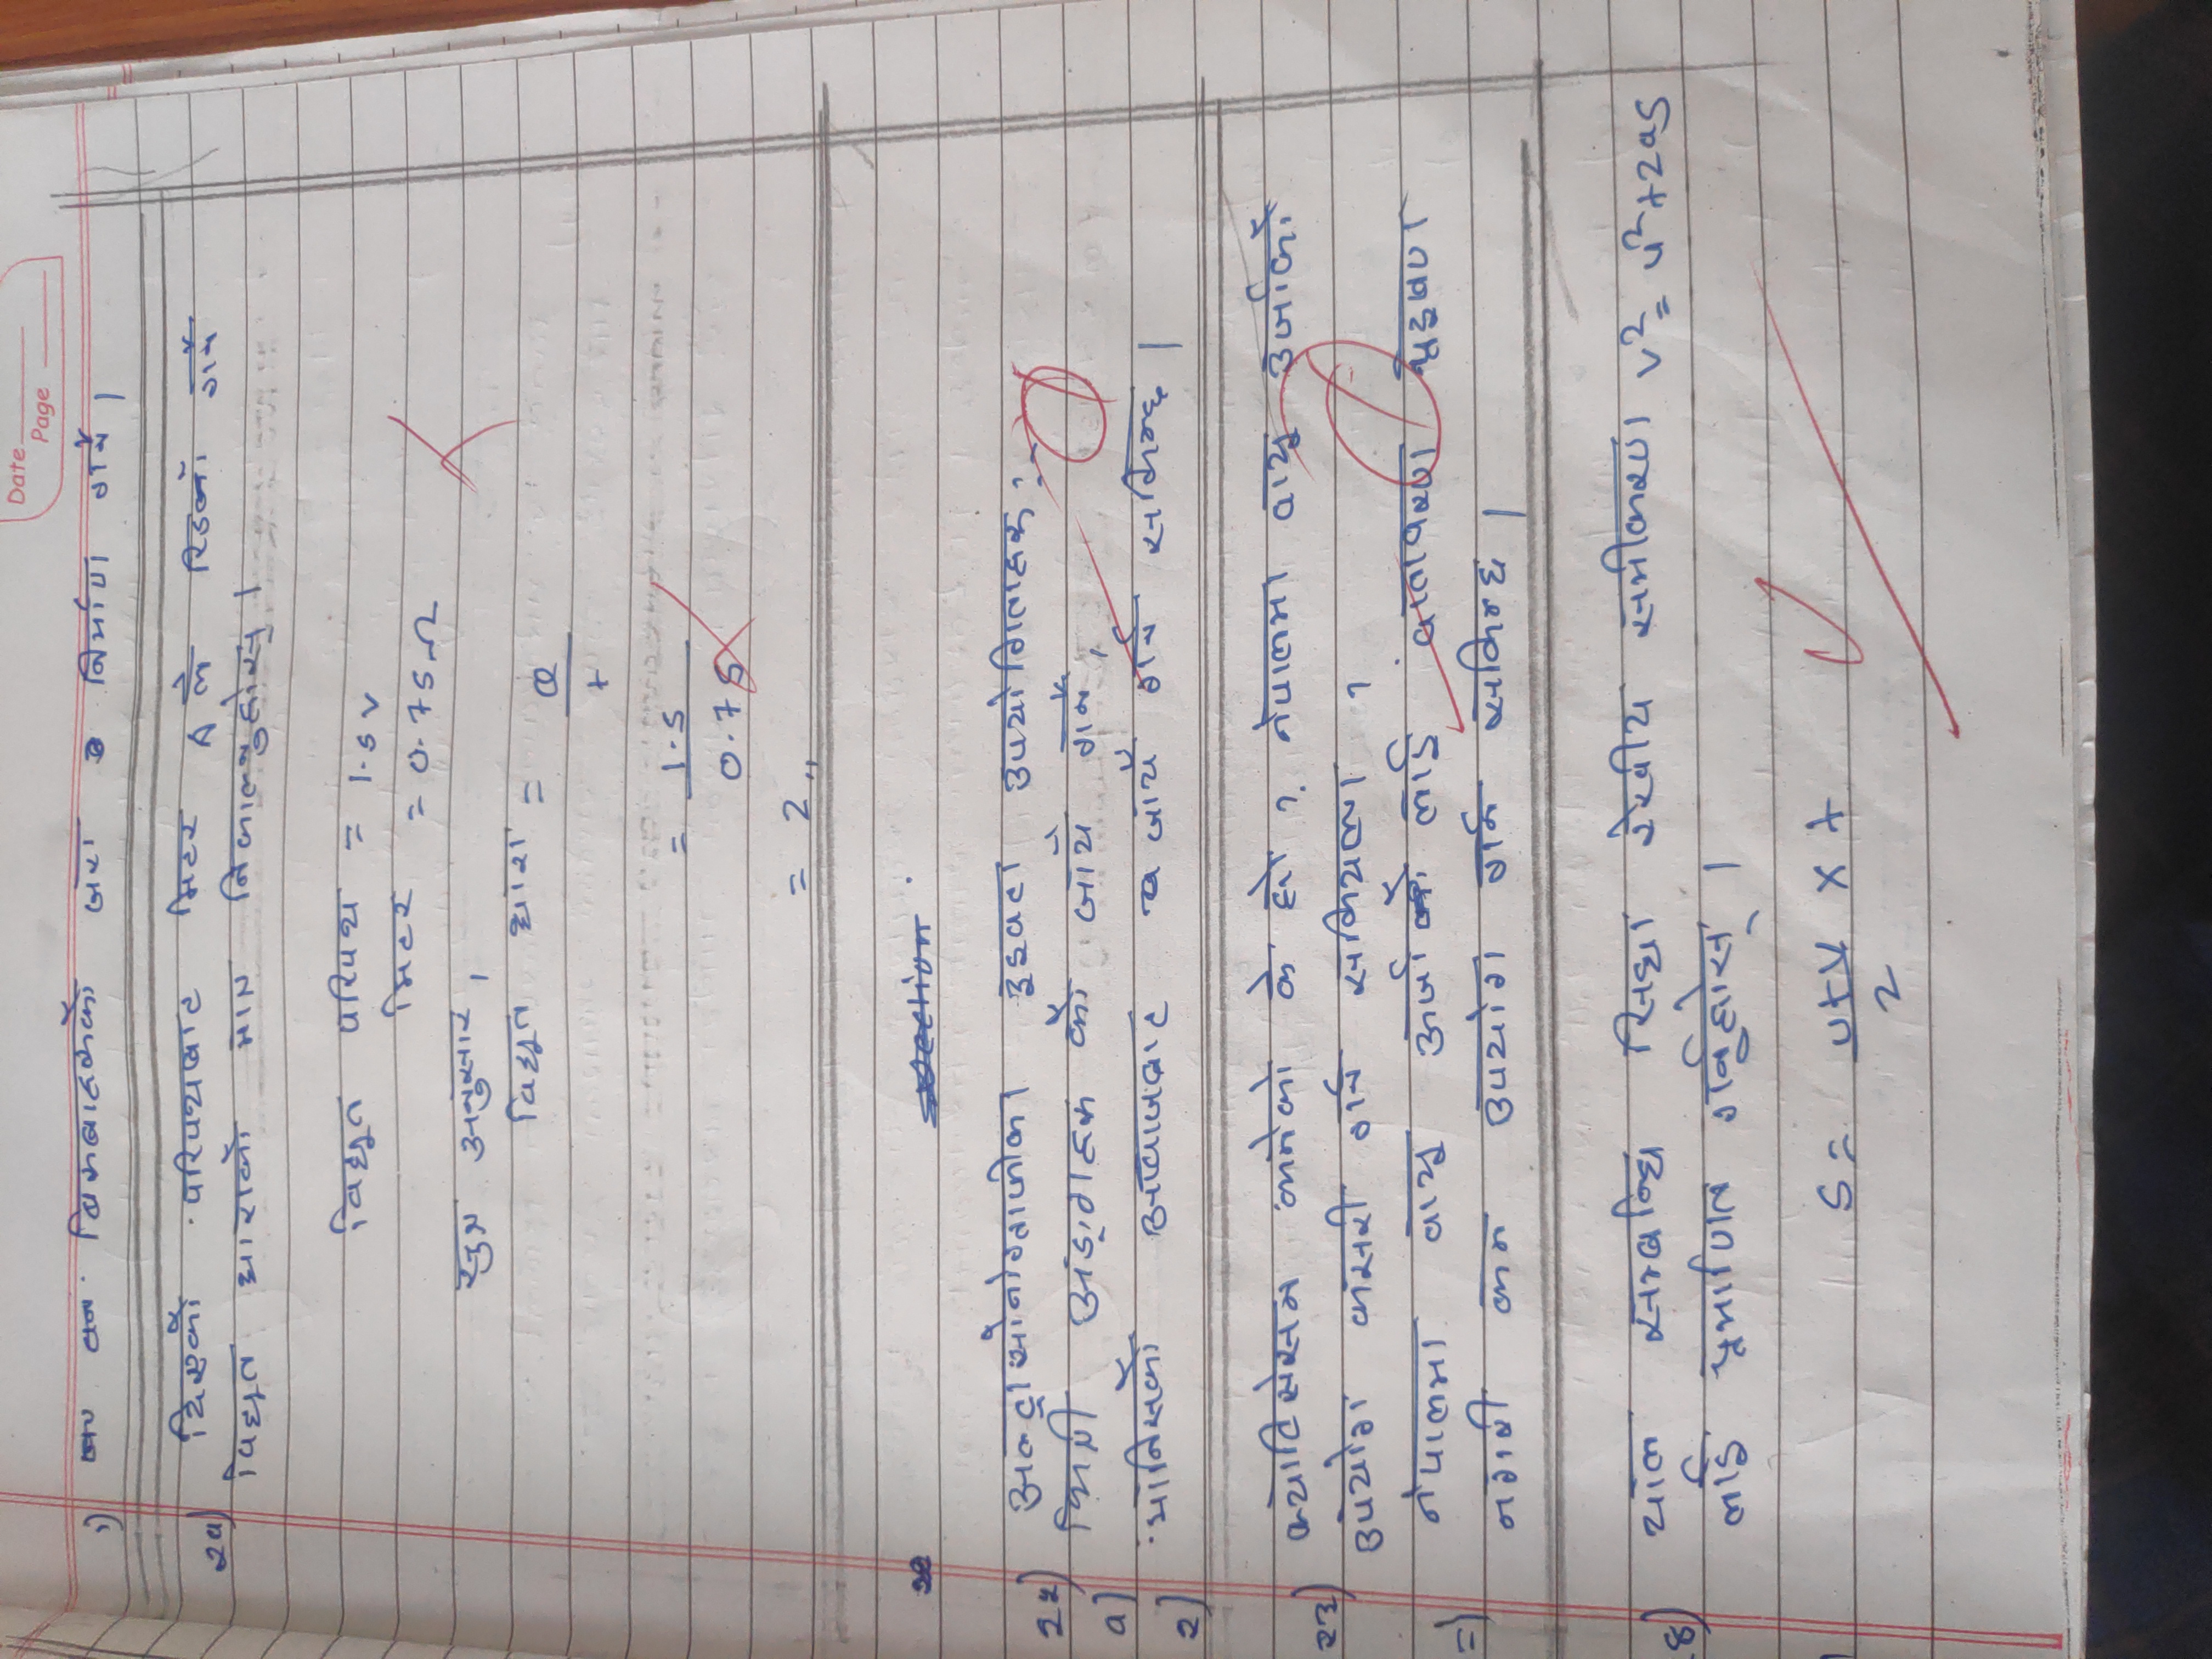 Date
Page
१) वन विरुवाहरुको जरा निर्माण गर्ने ।
२१) दिएको परिपथबाट मिटर A ले रिडिङ गर्ने
विद्युत धाराको मान निकाल्नुहोस् ।
विद्युत परिपथ = 1.5 V
मिटर = 0.75 Ω
सुत्र अनुसार,
विद्युत धारा = Q
t
= 1.5
0.75
= 2 ,,
section
२२) अल्ट्रासोनोग्राफीका दुइवटा उपयोगिताहरु :-
a) भित्री अङ्गहरु को जाचँ गर्न,
२) मानिसको आवाजबाट जाचँ गर्न सकिन्छ ।
२३) भनेको के हो ? नेपालमा वायू उर्जाको
उपयोग कसरी गर्न सकिएला ?
=) नेपालमा वायू ऊर्जा लाई वातावरण प्रदुषण
नगरी कन उपयोग गर्न सकिन्छ ।
४) चाल सम्बन्धि सिधा रेखीय समीकरण v² = u² + 2as
लाई प्रमाणित गर्नुहोस् ।
S = u+v × t
2